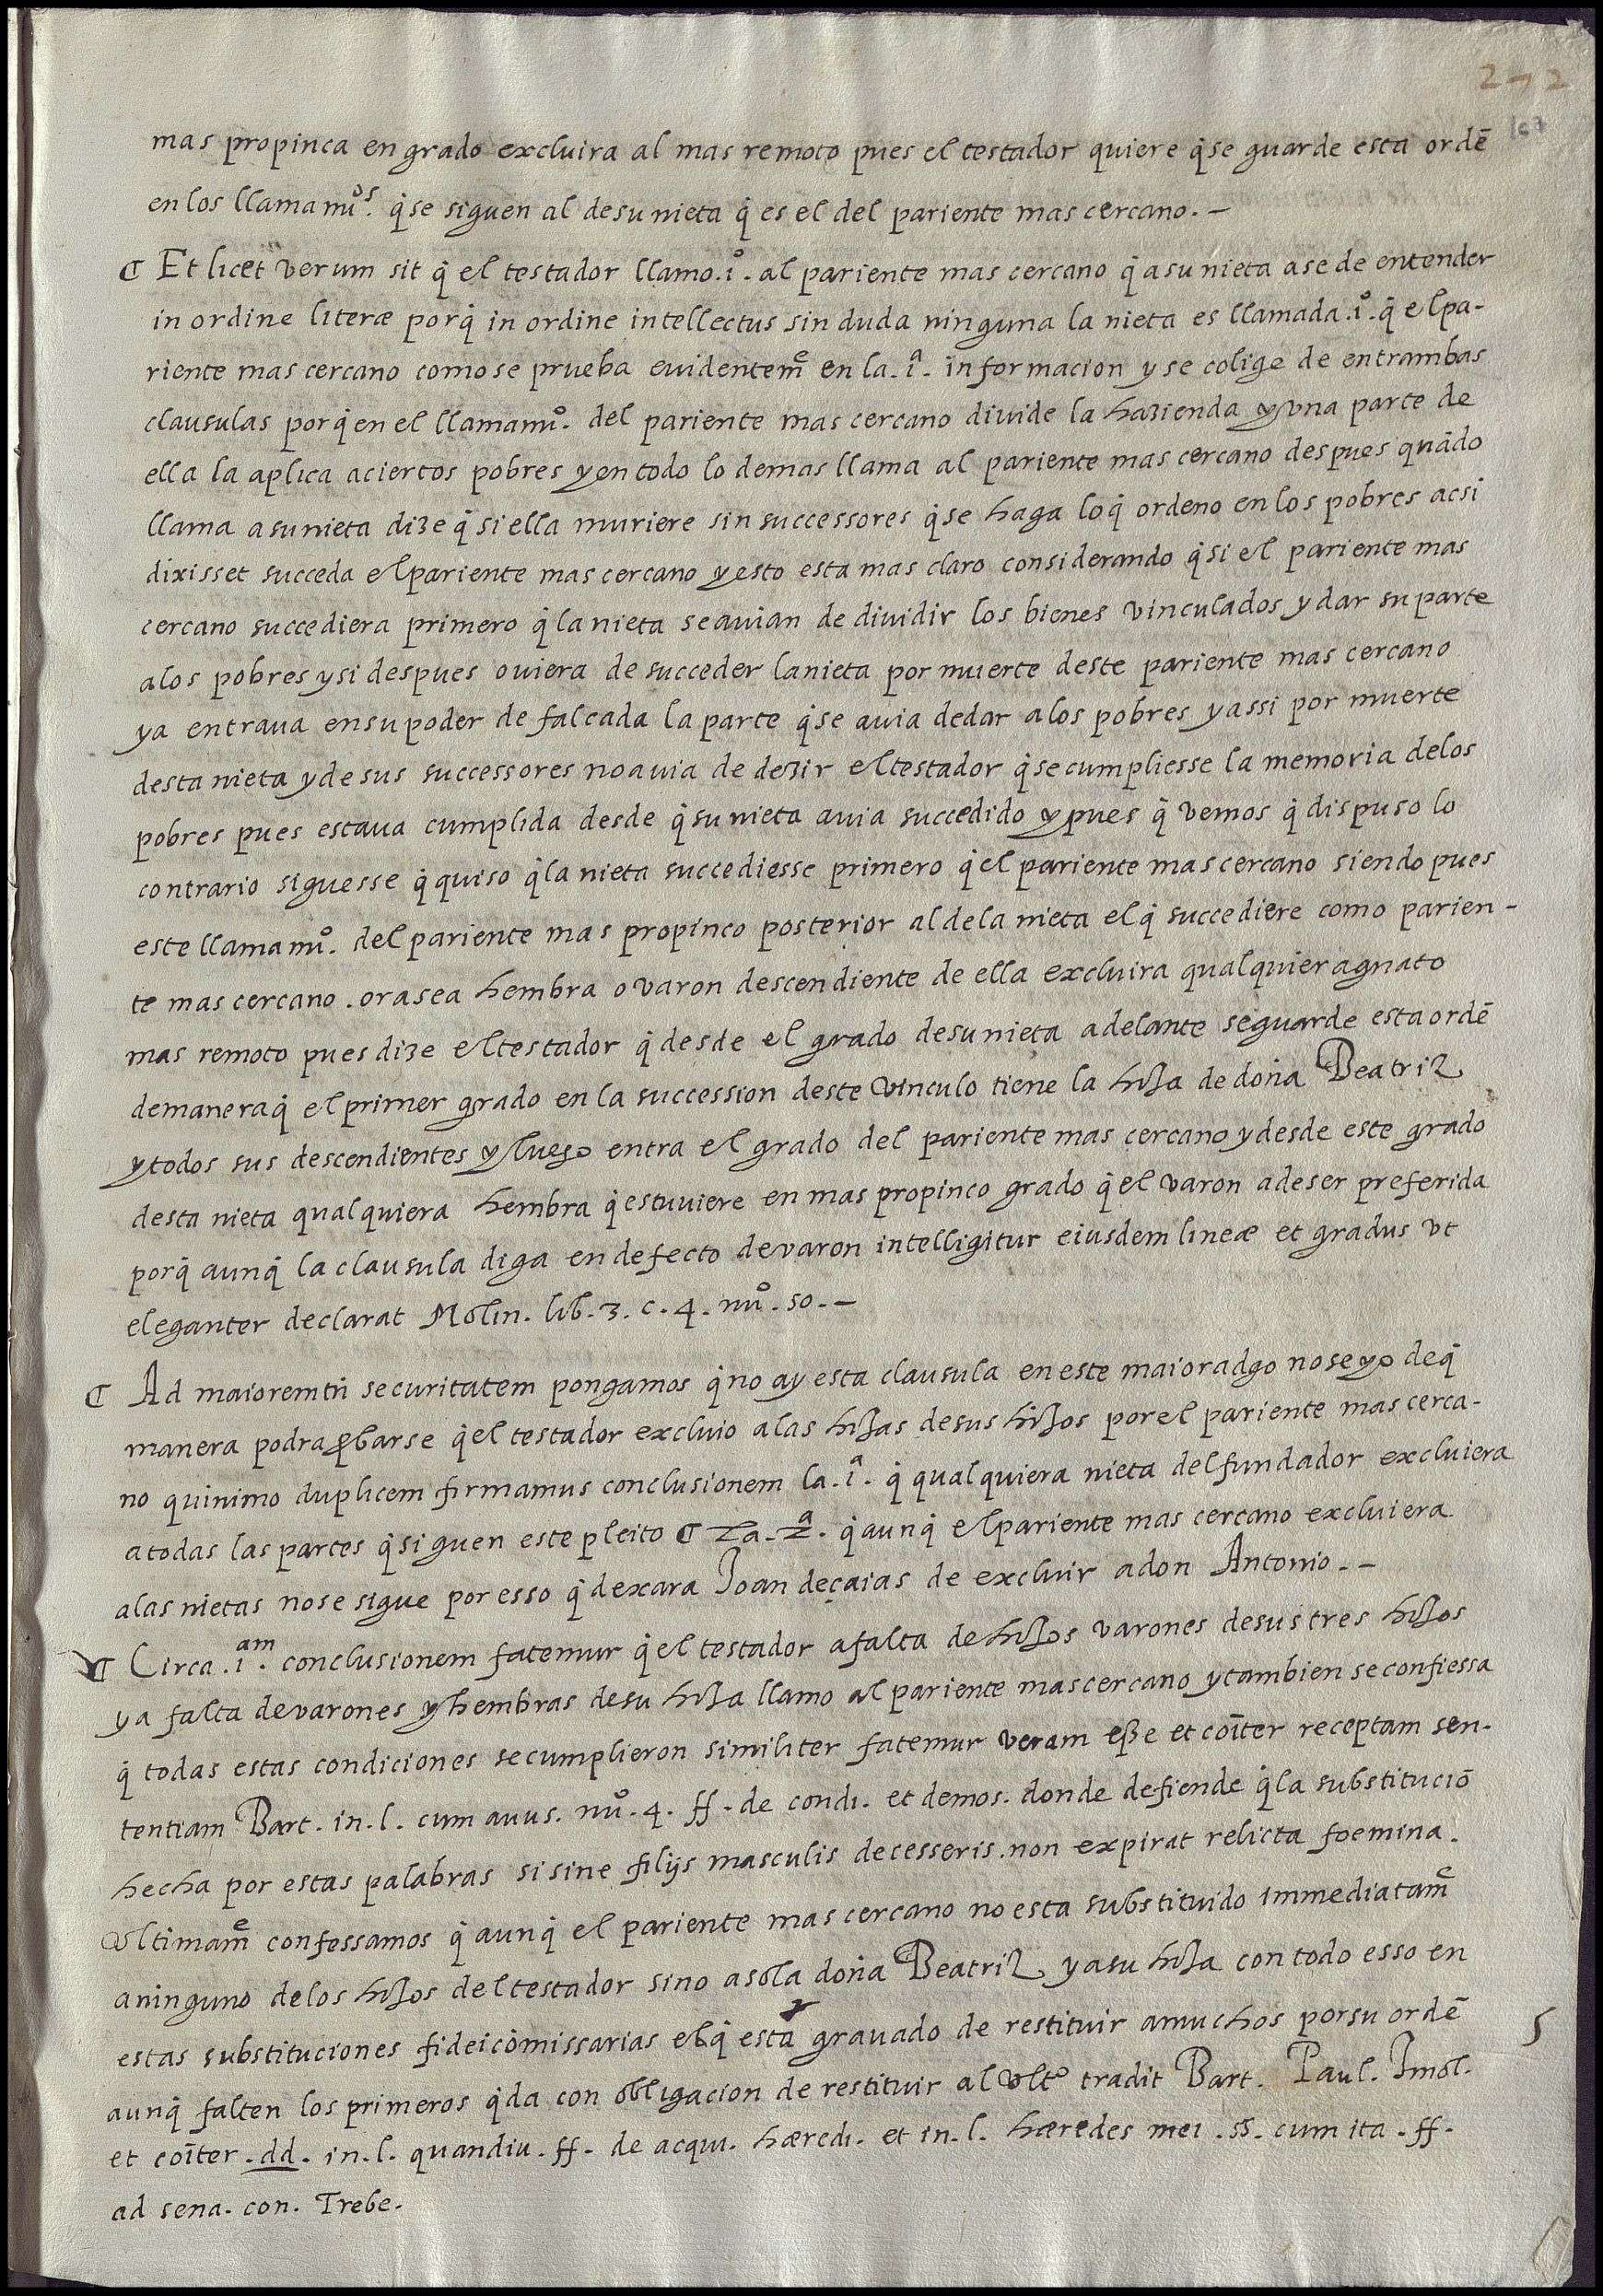 272
167
mas propinca en grado excluira al mas remoto pues el testador quiere q̃ se guarde esta ordẽ
en los llamamiᵒˢ. q̃ se siguen al de su nieta q̃ es el del pariente mas cercano. –
¶ Et licet verum sit q̃ el testador llamo .1º. al pariente mas cercano q̃ a su nieta a se de entender
in ordine literæ porq̃ in ordine intellectus sin duda ninguna la nieta es llamada .1º. q̃ el pa-
riente mas cercano como se prueba evidentemᵉ en la .1ª. informacion y se colige de entrambas
clausulas porq̃ en el llamamiº. del pariente mas cercano divide la hazienda y una parte de
ella la aplica a ciertos pobres y en todo lo demas llama al pariente mas cercano despues quãdo
llama a su nieta dize q̃ si ella muriere sin successores q̃ se haga lo q̃ ordeno en los pobres acsi
dixisset succeda el pariente mas cercano y esto esta mas claro considerando q̃ si el pariente mas
cercano succediera primero q̃ la nieta se avian de dividir los bienes vinculados y dar su parte
a los pobres y si despues oviera de succeder la nieta por muerte deste pariente mas cercano
ya entrava en su poder defalcada la parte q̃ se avia de dar a los pobres y assi por muerte
desta nieta y de sus successores no avia de dezir el testador q̃ se cumpliesse la memoria de los
pobres pues estava cumplida desde q̃ su nieta avia succedido y pues q̃ vemos q̃ dispuso lo
contrario siguesse q̃ quiso q̃ la nieta succediesse primero q̃ el pariente mas cercano siendo pues
este llamamiº. del pariente mas propinco posterior al de la nieta el q̃ succediere como parien-
te mas cercano. ora sea hembra o varon descendiente de ella excluira qualquier agnato
mas remoto pues dize el testador q̃ desde el grado de su nieta adelante se guarde esta ordẽ
de manera q̃ el primer grado en la succession deste vinculo tiene la hija de doña Beatriz
y todos sus descendientes y luego entra el grado del pariente mas cercano y desde este grado
desta nieta qualquiera hembra q̃ estuviere en mas propinco grado q̃ el varon a de ser preferida
porq̃ aunq̃ la clausula diga en defecto de varon intelligitur eiusdem lineæ et gradus vt
eleganter declarat Molin. lib. 3. c. 4. nuº. 50. –
¶ Ad maiorem tñ securitatem pongamos q̃ no ay esta clausula en este maioradgo no se yo de q̃
manera podra ꝓbarse q̃ el testador excluio a las hijas de sus hijos por el pariente mas cerca-
no quinimo duplicem firmamus conclusionem la .1ª. q̃ qualquiera nieta del fundador excluiera
a todas las partes q̃ siguen este pleito ¶ La .2ª. q̃ aunq̃ el pariente mas cercano excluiera
a las nietas no se sigue por esso q̃ dexara Joan de çaias de excluir a don Antonio. –
¶ Circa .1ᵃᵐ. conclusionem fatemur q̃ el testador a falta de hijos varones de sus tres hijos
y a falta de varones y hembras de su hija llamo al pariente mas cercano y tambien se confiessa
q̃ todas estas condiciones se cumplieron similiter fatemur veram eße et coĩter receptam sen-
tentiam Bart. in. l. cum avus. nuº. 4. ff. de condi. et demos. donde defiende q̃ la substituciõ
hecha por estas palabras si sine filijs masculis decesseris. non expirat relicta foemina.
Vltimamᵉ confessamos q̃ aunq̃ el pariente mas cercano no esta substituido immediatamᵉ
a ninguno de los hijos del testador sino a sola doña Beatriz y a su hija con todo esso en
estas substituciones fideicõmissarias el q̃ esta gravado de restituir a muchos por su ordẽ
aunq̃ falten los primeros q̃da con obligacion de restituir al vltº tradit Bart. Paul. Imol.
et coĩter .dd. in. l. quandiu. ff. de acqui. hæredi. et in. l. hæredes mei .§. cum ita. ff.
ad sena. con. Trebe.